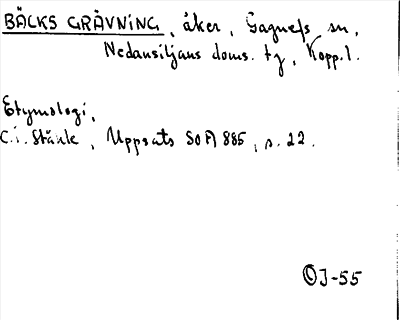 BÄCKS GRÄVNING, åker, Gagnefs sn,
Nedansiljans doms. tg, Kopp. l.
Etymologi,
C. i. Ståhle, Uppsats SOFI 885, s. 22.
OJ-55